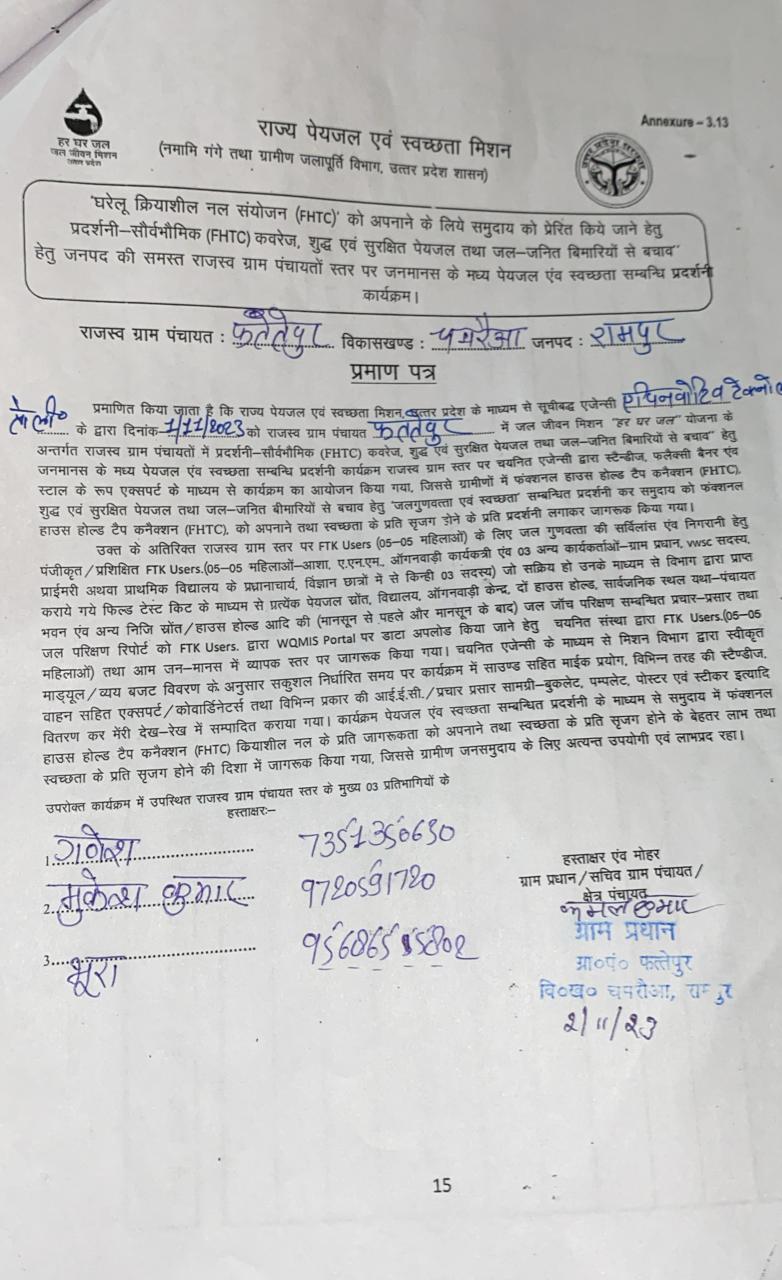 Annexure – 3.13
हर घर जल
जल जीवन मिशन
उत्तर प्रदेश
राज्य पेयजल एवं स्वच्छता मिशन
(नमामि गंगे तथा ग्रामीण जलापूर्ति विभाग, उत्तर प्रदेश शासन)
'घरेलू क्रियाशील नल संयोजन (FHTC)' को अपनाने के लिये समुदाय को प्रेरित किये जाने हेतु
प्रदर्शनी–सौर्वभौमिक (FHTC) कवरेज, शुद्ध एवं सुरक्षित पेयजल तथा जल–जनित बिमारियों से बचाव"
हेतु जनपद की समस्त राजस्व ग्राम पंचायतों स्तर पर जनमानस के मध्य पेयजल एंव स्वच्छता सम्बन्धि प्रदर्शनी
कार्यक्रम।
राजस्व ग्राम पंचायत : फत्तेपुर विकासखण्ड : चमरौआ जनपद : रामपुर
प्रमाण पत्र
प्रमाणित किया जाता है कि राज्य पेयजल एवं स्वच्छता मिशन, उत्तर प्रदेश के माध्यम से सूचीबद्ध एजेन्सी
के द्वारा दिनांक 1/11/2023 को राजस्व ग्राम पंचायत फत्तेपुर में जल जीवन मिशन "हर घर जल" योजना के
अन्तर्गत राजस्व ग्राम पंचायतों में प्रदर्शनी–सौर्वभौमिक (FHTC) कवरेज, शुद्ध एवं सुरक्षित पेयजल तथा जल–जनित बिमारियों से बचाव" हेतु
जनमानस के मध्य पेयजल एंव स्वच्छता सम्बन्धि प्रदर्शनी कार्यक्रम राजस्व ग्राम स्तर पर चयनित एजेन्सी द्वारा स्टेन्डीज, फलैक्सी बैनर एंव
स्टाल के रूप एक्सपर्ट के माध्यम से कार्यक्रम का आयोजन किया गया, जिससे ग्रामीनों में फंक्शनल हाउस होल्ड टैप कनैक्शन (FHTC),
शुद्ध एवं सुरक्षित पेयजल तथा जल–जनित बीमारियों से बचाव हेतु 'जलगुणवत्ता एवं स्वच्छता' सम्बन्धित प्रदर्शनी कर समुदाय को फंक्शनल
हाउस होल्ड टैप कनैक्शन (FHTC), को अपनाने तथा स्वच्छता के प्रति सृजग होने के प्रति प्रदर्शनी लगाकर जागरूक किया गया।
उक्त के अतिरिक्त राजस्व ग्राम स्तर पर FTK Users (05–05 महिलाओं) के लिए जल गुणवत्ता की सर्विलांस एंव निगरानी हेतु
पंजीकृत/प्रशिक्षित FTK Users.(05–05 महिलाओं–आशा, ए.एन.एम., ऑगनवाड़ी कार्यकत्री एंव 03 अन्य कार्यकर्ताओं–ग्राम प्रधान, vwsc सदस्य,
प्राईमरी अथवा प्राथमिक विद्यालय के प्रधानाचार्य, विज्ञान छात्रों में से किन्ही 03 सदस्य) जो सक्रिय हो उनके माध्यम से विभाग द्वारा प्राप्त
कराये गये फिल्ड टेस्ट किट के माध्यम से प्रत्येक पेयजल स्रोंत, विद्यालय, ऑगनवाड़ी केन्द्र, दों हाउस होल्ड, सार्वजनिक स्थल यथा–पंचायत
भवन एंव अन्य निजि स्रोंत/हाउस होल्ड आदि की (मानसून से पहले और मानसून के बाद) जल जॉच परिक्षण सम्बन्धित प्रचार–प्रसार तथा
जल परिक्षण रिपोर्ट को FTK Users. द्वारा WQMIS Portal पर डाटा अपलोड किया जाने हेतु चयनित संस्था द्वारा FTK Users.(05–05
महिलाओं) तथा आम जन–मानस में व्यापक स्तर पर जागरूक किया गया। चयनित एजेन्सी के माध्यम से मिशन विभाग द्वारा स्वीकृत
माड्यूल/व्यय बजट विवरण के अनुसार सकुशल निर्धारित समय पर कार्यक्रम में साउण्ड सहित माईक प्रयोग, विभिन्न तरह की स्टैण्डीज,
वाहन सहित एक्सपर्ट/कोवार्डिनेटर्स तथा विभिन्न प्रकार की आई.ई.सी./प्रचार प्रसार सामग्री–बुकलेट, पम्पलेट, पोस्टर एवं स्टीकर इत्यादि
वितरण कर मेंरी देख–रेख में सम्पादित कराया गया। कार्यक्रम पेयजल एंव स्वच्छता सम्बन्धित प्रदर्शनी के माध्यम से समुदाय में फंक्शनल
हाउस होल्ड टैप कनैक्शन (FHTC) कियाशील नल के प्रति जागरूकता को अपनाने तथा स्वच्छता के प्रति सृजग होने के बेहतर लाभ तथा
स्वच्छता के प्रति सृजग होने की दिशा में जागरूक किया गया, जिससे ग्रामीण जनसमुदाय के लिए अत्यन्त उपयोगी एवं लाभप्रद रहा।
उपरोक्त कार्यक्रम में उपस्थित राजस्व ग्राम पंचायत स्तर के मुख्य 03 प्रतिभागियों के
हस्ताक्षरः–
1. गणेश 7351350630
2. मुकेश कुमार 9720591720
3. भूरा
हस्ताक्षर एंव मोहर
ग्राम प्रधान/सचिव ग्राम पंचायत/
क्षेत्र पंचायत
कमल कुमार
ग्राम प्रधान
ग्रा०पं० फत्तेपुर
वि०ख० चमरौआ, रामपुर
2/11/23
15